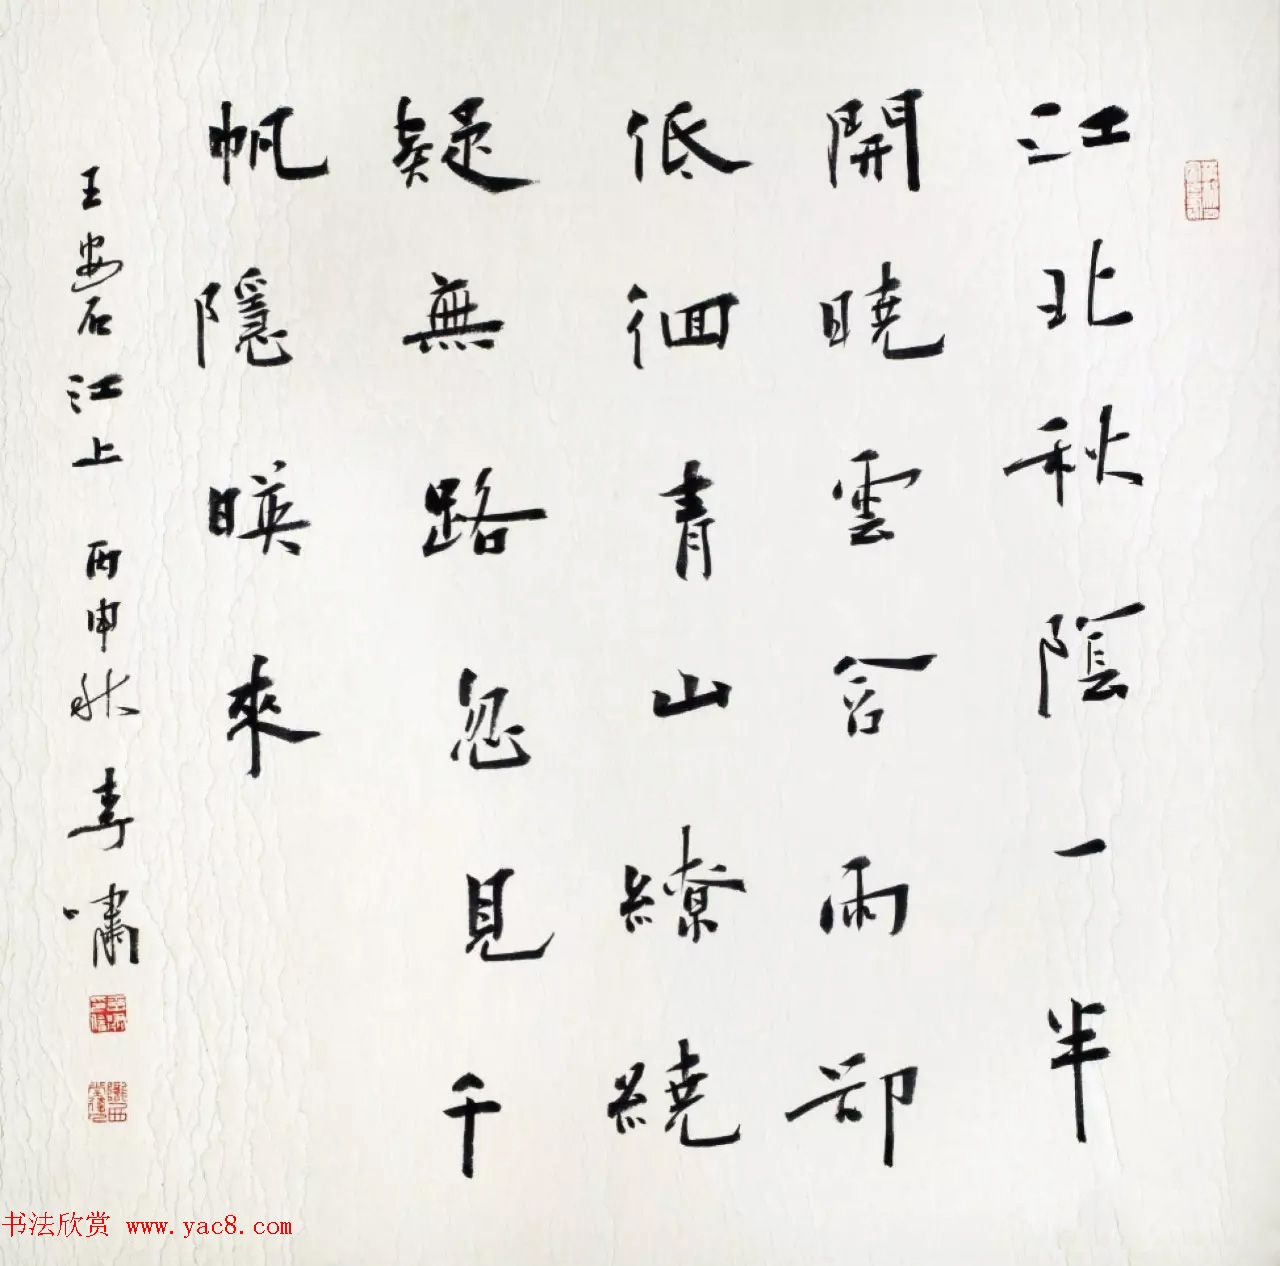 江北秋陰一半
開曉雲含雨却
低徊青山繚繞
疑無路忽見千
帆隱映來
王安石江上 丙申秋 李嘯
书法欣赏 www.yac8.com